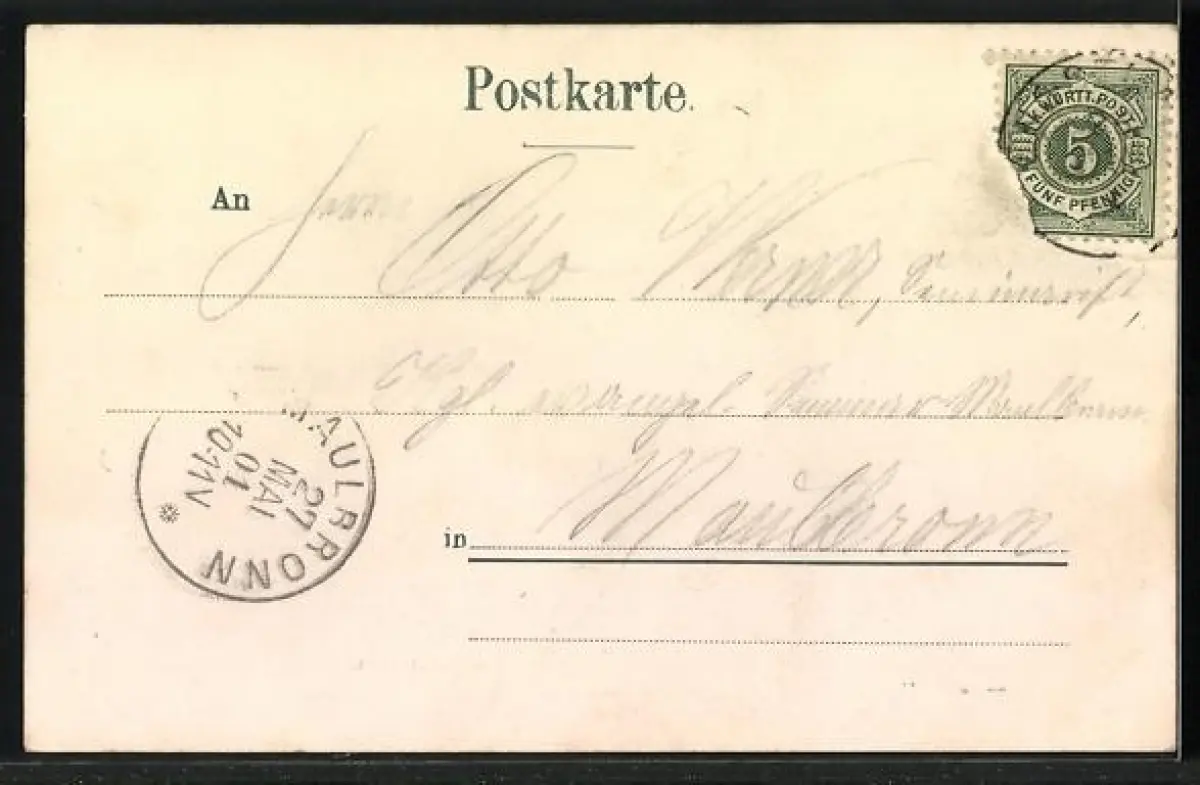 Postkarte.
K. WÜRTT. POST
5
FÜNF PFENNIG
An Herrn Otto Werner, Seminarist,
Kgl. evang. Seminar Maulbronn
MAULBRONN
27
MAI
01
10-11V
in Maulbronn